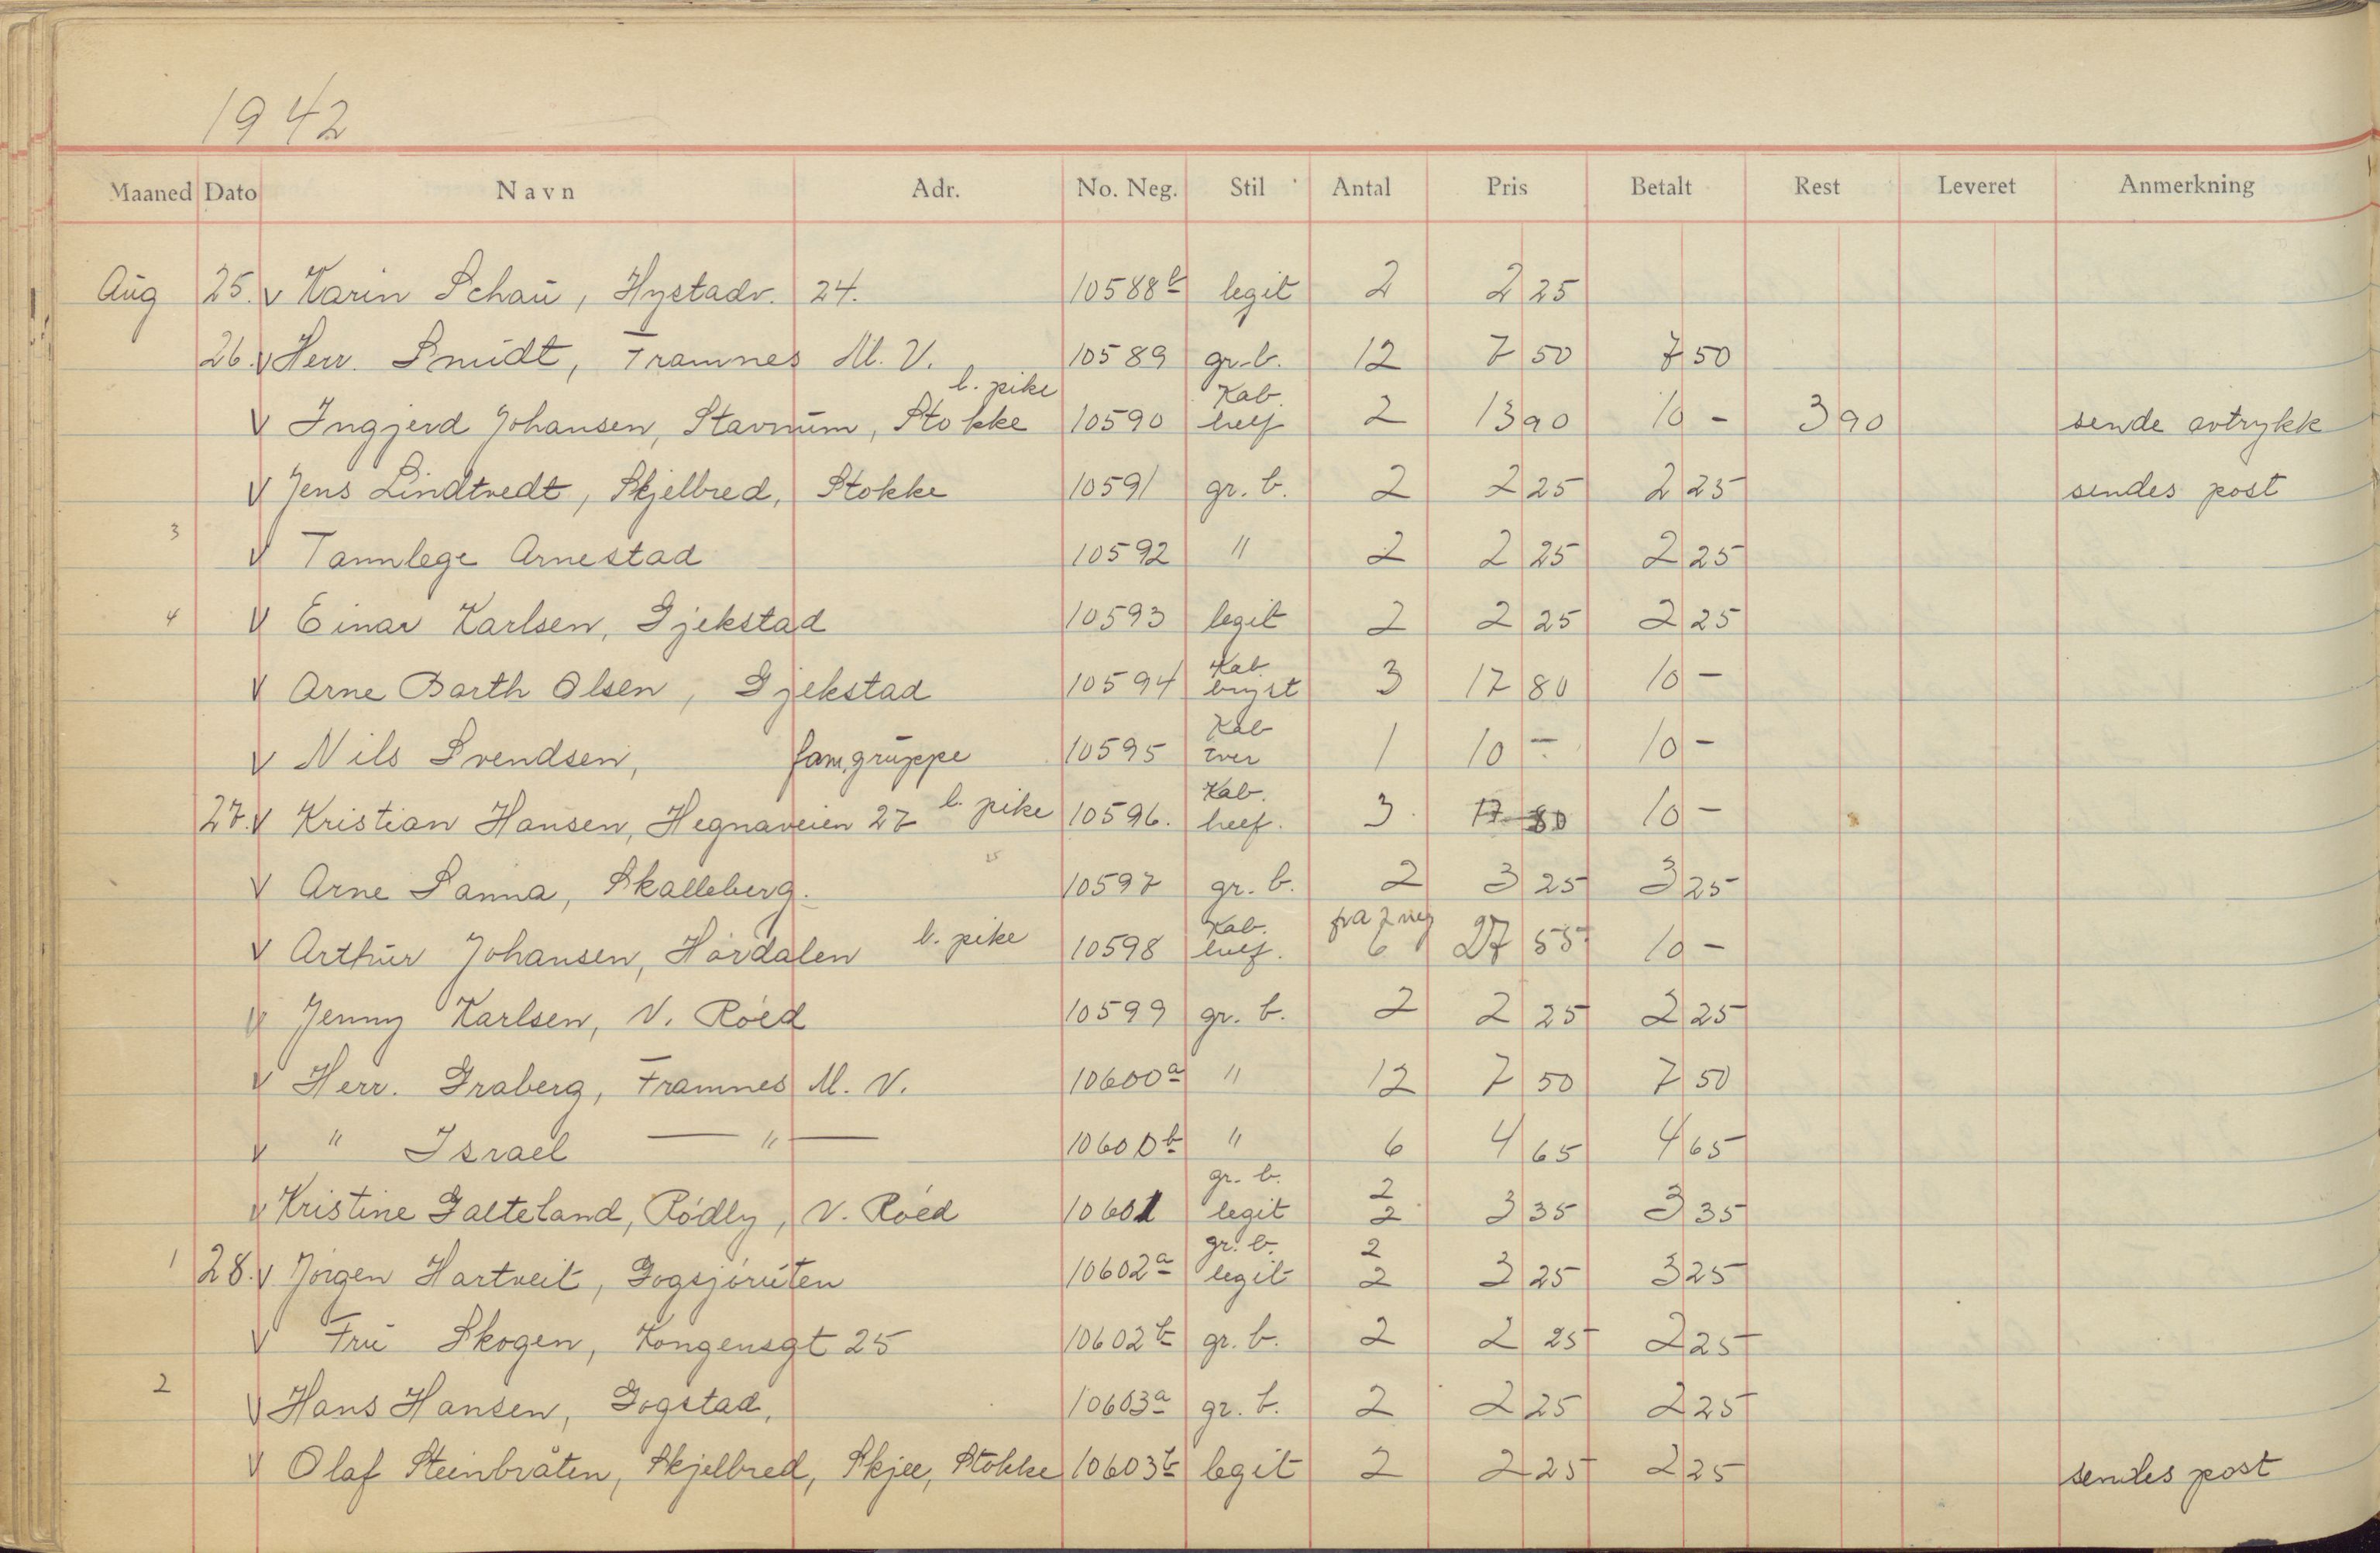 1942
Maaned Dato Navn Adr. No. Neg. Stil Antal Pris Betalt Rest Leveret Anmerkning
Aug 25. v Karin Schau, Hystadv. 24. 10588b legit 2 2 25
26. v Herr. Smidt, Framnes M. V. 10589 gr. b. 12 7 50 7 50
l. pike Kab.
v Ingjerd Johansen, Stavnum, Stokke 10590 helf 2 13 90 10 - 3 90 sende avtrykk
v Jens Lindtvedt, Skjelbred, Stokke 10591 gr. b. 2 2 25 2 25 sendes post
3
v Tannlege Arnestad 10592 " 2 2 25 2 25
4 v Einar Karlsen, Gjekstad 10593 legit 2 2 25 2 25
Kab.
v Arne Barth Olsen, Gjekstad 10594 bryst 3 17 80 10 -
Kab
v Nils Svendsen, fam.gruppe 10595 tver 1 10 - 10 -
l. pike Kab.
27. v Kristian Hansen, Hegnaveien 27 10596. helf. 3 17 80 10 -
v Arne Sanna, Skalleberg. 10597 gr. b. 2 3 25 3 25
l. pike Kab. fra 2 neg
v Arthur Johansen, Hórdalen 10598 helf. 6 27 55 10 -
v Jenny Karlsen, V. Róed 10599 gr. b. 2 2 25 2 25
v Herr. Graberg, Framnes M. V. 10600a " 12 7 50 7 50
v " Israel — " — 10600b " 6 4 65 4 65
gr. b. 2
v Kristine Galteland, Ródly, V. Róed 10601 legit 2 3 35 3 35
gr. b. 2
1 28. v Jórgen Hartveit, Gogsjóruten 10602a legit 2 3 25 3 25
v Fru Skogen, Kongensgt 25 10602b gr. b. 2 2 25 2 25
2
v Hans Hansen, Gogstad, 10603a gr. b. 2 2 25 2 25
v Olaf Steinbråten, Skjelbred, Skjee, Stokke 10603b legit 2 2 25 2 25 sendes post